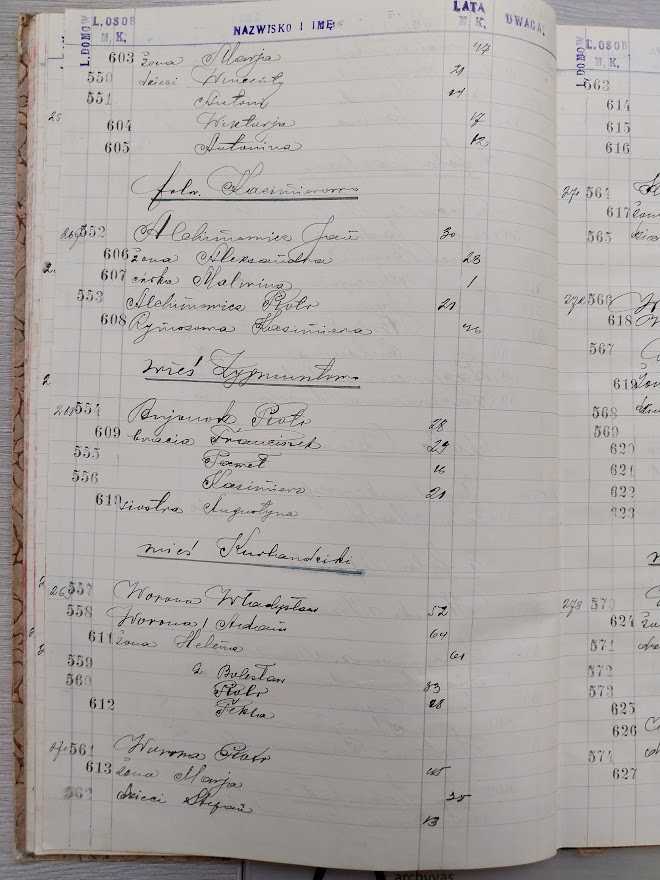 L. DOMÓW L. OSOB M. K. NAZWISKO I IMĘ LATA M. K. UWAGA
603 żona Marja 47
550 dzieci Wincenty 21
551 Antoni 14
604 Wiktorja 17
605 Antonina 12
folw. Kazimierowo
552 Alchimowicz Jan 30
606 żona Aleksandra 23
607 córka Malwina 1
553 Alchimowicz Piotr 21
608 Kazimiera
wieś Zygmuntowo
554 Piotr 28
609 bracia Franciszek 29
555 Paweł 16
556 Kazimierz 21
610 siostra Augustyna
wieś Kurhandciki
557 Worona Władysław 52
558 Worona Adam 64
611 żona Helena 61
559 Bolesław 33
560 Piotr 28
612 Tekla
561 Worona Piotr 45
613 żona Marja 35
562 dzieci Stefan 13
L. DOMÓW L. OSOB M. K.
563
614
615
616
564
617
565
566
618
567
619
568
569
620
621
622
623
570
624
571
572
573
625
626
574
627
archyvas